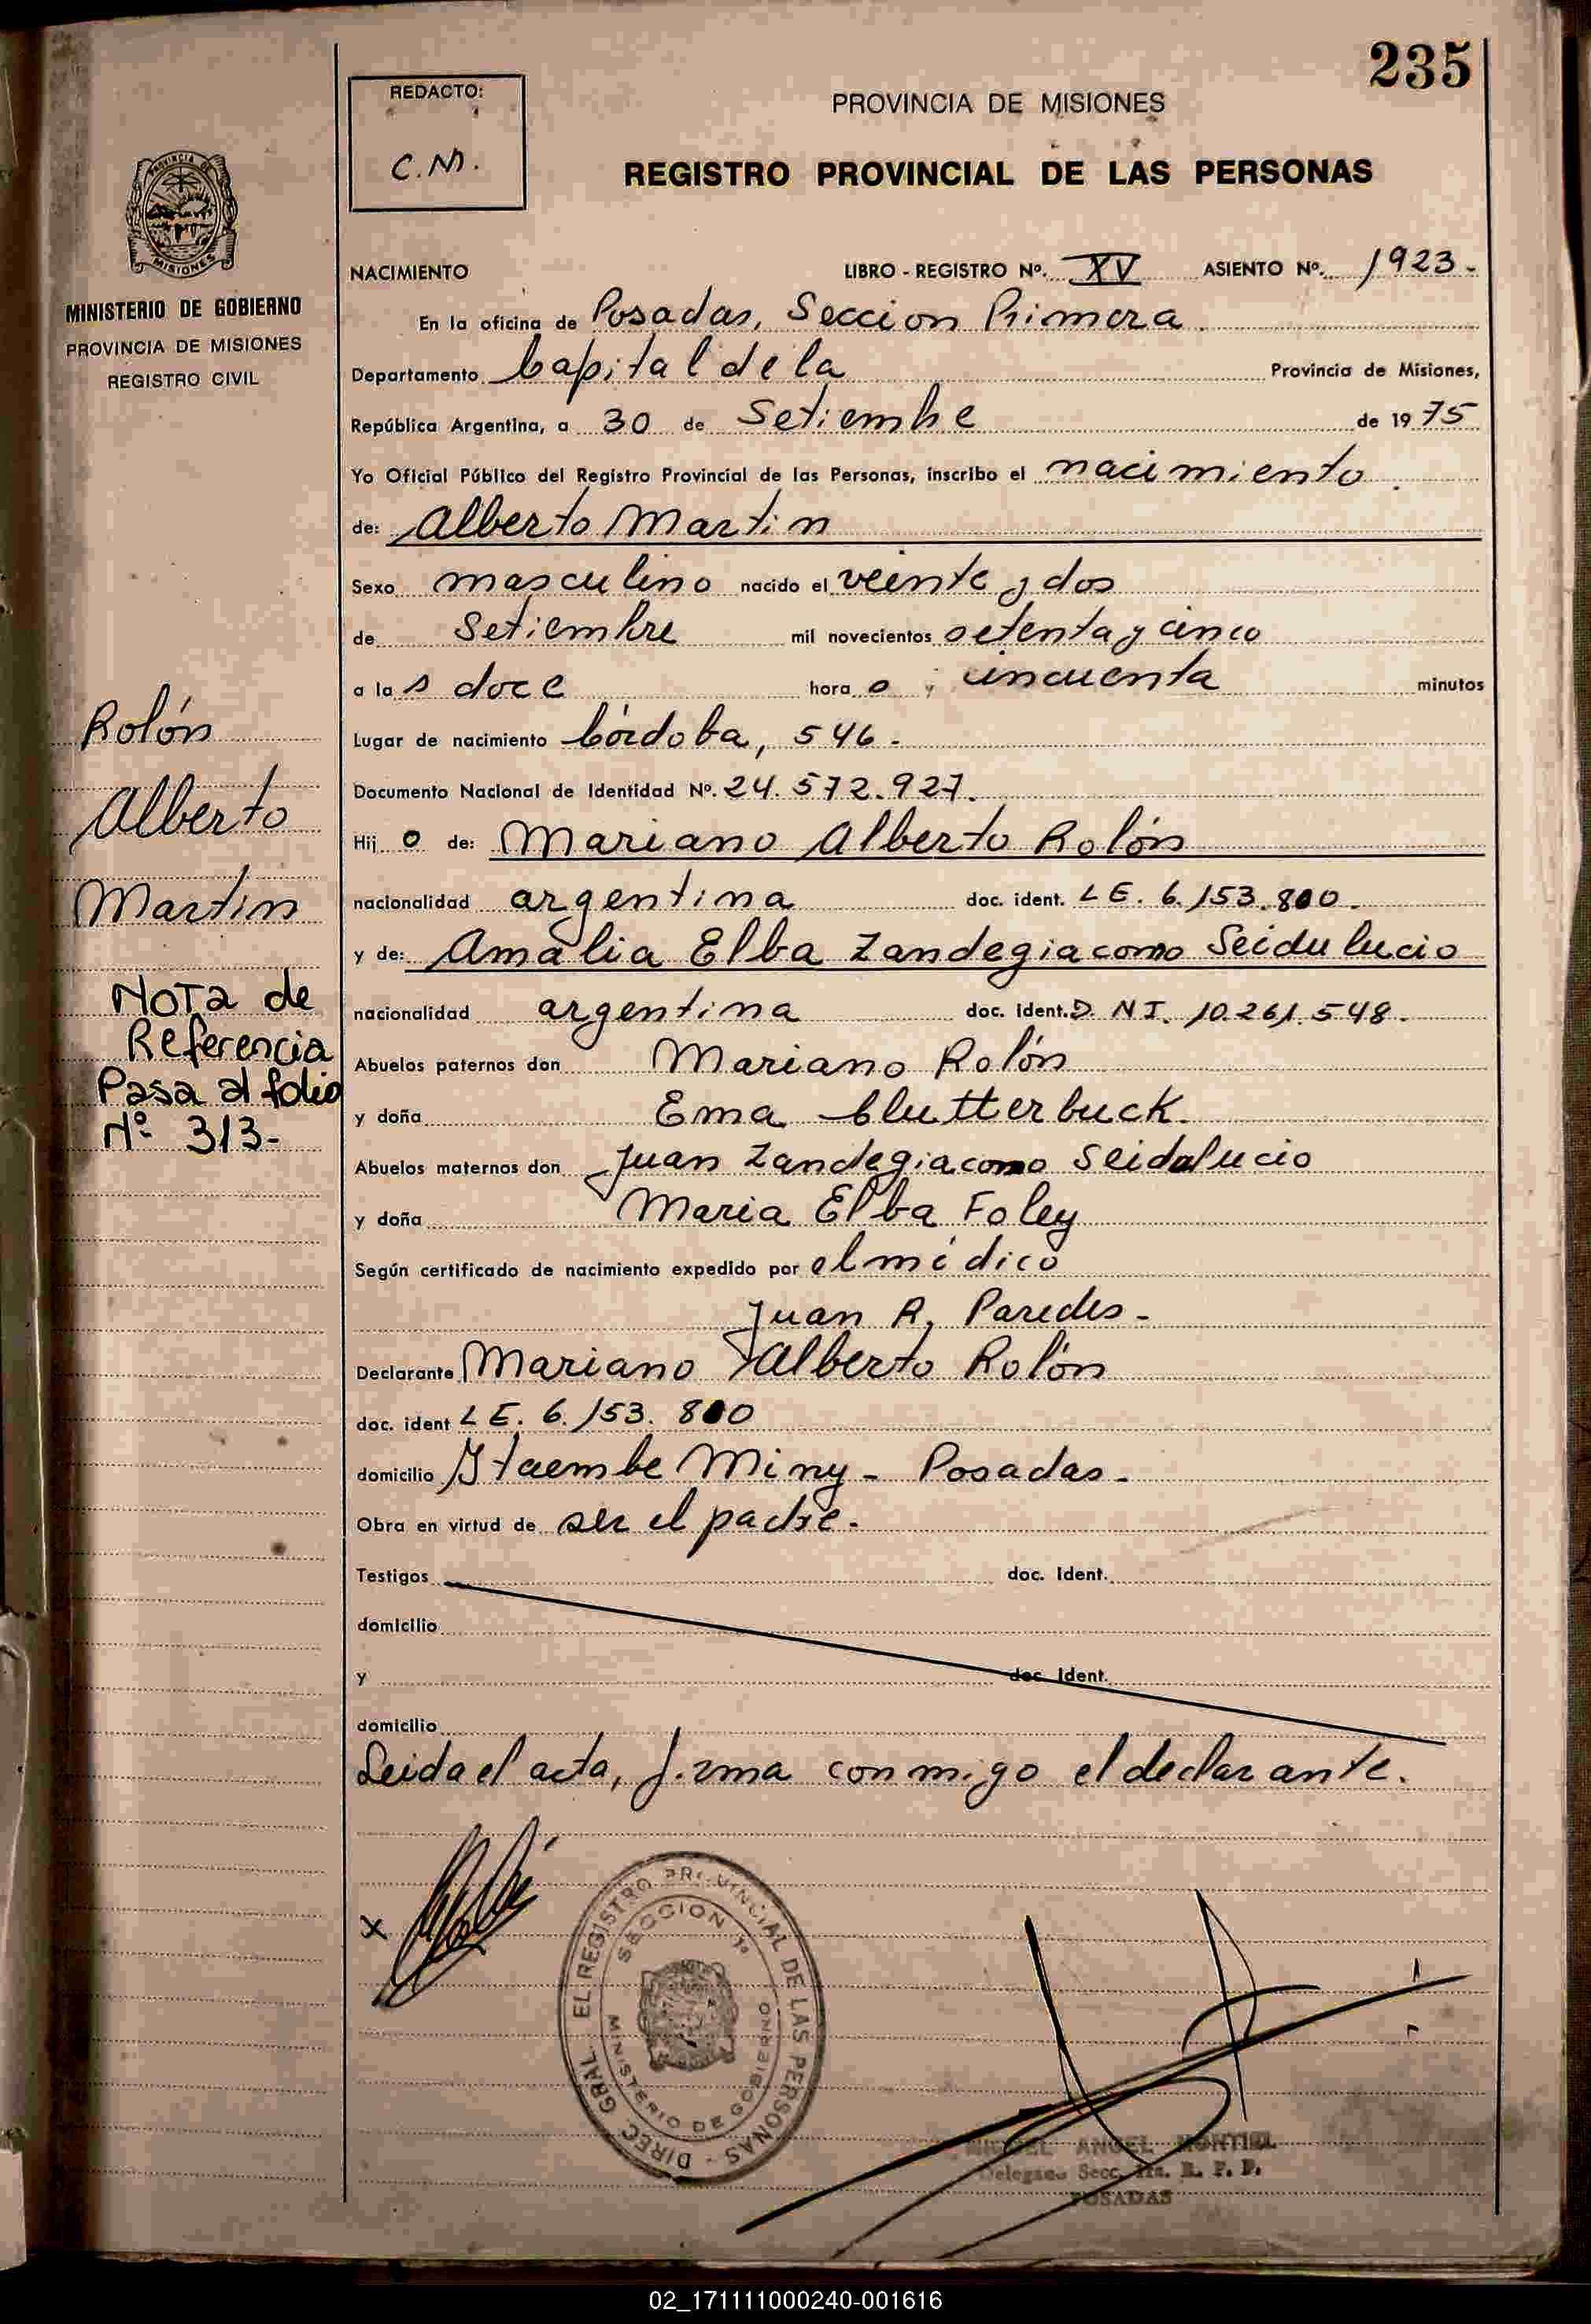 235
REDACTO:
C.M.
PROVINCIA DE MISIONES
REGISTRO PROVINCIAL DE LAS PERSONAS
PROVINCIA DE
MISIONES
MINISTERIO DE GOBIERNO
PROVINCIA DE MISIONES
REGISTRO CIVIL
NACIMIENTO LIBRO - REGISTRO Nº. XV ASIENTO Nº. 1923-
En la oficina de Posadas, Seccion Primera
Departamento Capital de la Provincia de Misiones,
República Argentina, a 30 de Setiembre de 1975
Yo Oficial Público del Registro Provincial de las Personas, inscribo el nacimiento
de: Alberto Martin
Sexo masculino nacido el veinte y dos
de Setiembre mil novecientos setenta y cinco
a las doce hora o y cincuenta minutos
Lugar de nacimiento Córdoba, 546-
Documento Nacional de Identidad Nº. 24.572.927.
Hijo de: Mariano Alberto Rolón
nacionalidad argentina doc. ident. LE. 6.153.800.
y de: Amalia Elba Zandegiacomo Seidulucio
nacionalidad argentina doc. Ident. D.N.I. 10.261.548.
Abuelos paternos don Mariano Rolón
y doña Ema Clutterbuck.
Abuelos maternos don Juan Zandegiacomo Seidalucio
y doña Maria Elba Foley
Según certificado de nacimiento expedido por el médico
Juan A. Paredes-
Declarante Mariano Alberto Rolón
doc. ident LE. 6.153.800
domicilio Itaembe Miny - Posadas-
Obra en virtud de ser el padre-
Testigos doc. Ident.
domicilio
y doc. Ident.
domicilio
Leida el acta, firma conmigo el declarante.
Rolón
Alberto
Martin
Nota de
Referencia
Pasa al folio
Nº 313-
x
DIREC. GRAL. EL REGISTRO PROVINCIAL DE LAS PERSONAS -
SECCION 1ª
MINISTERIO DE GOBIERNO
MIGUEL ANGEL MONTIEL
Delegado Secc. 1ra. R. P. P.
POSADAS
02_171111000240-001616